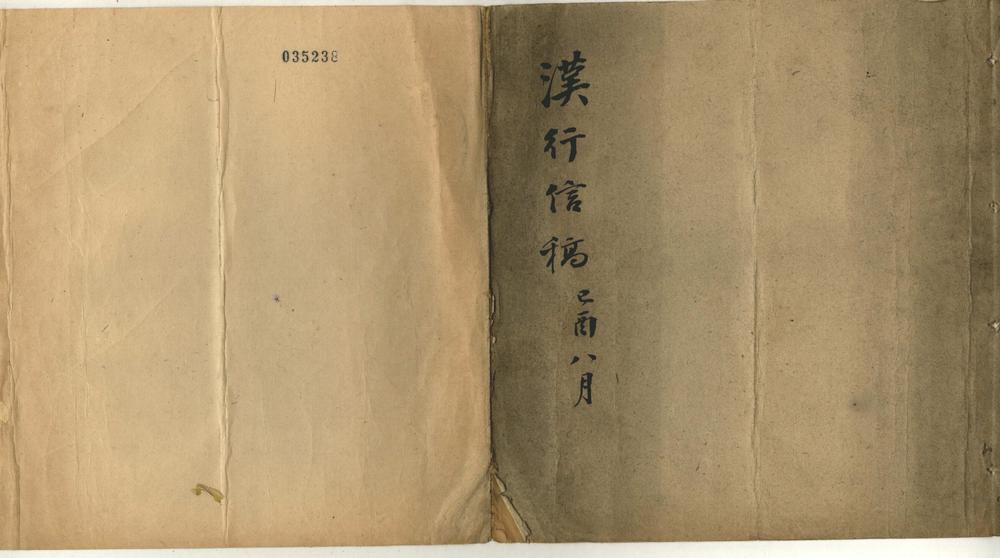 漢行信稿
己酉八月
035238